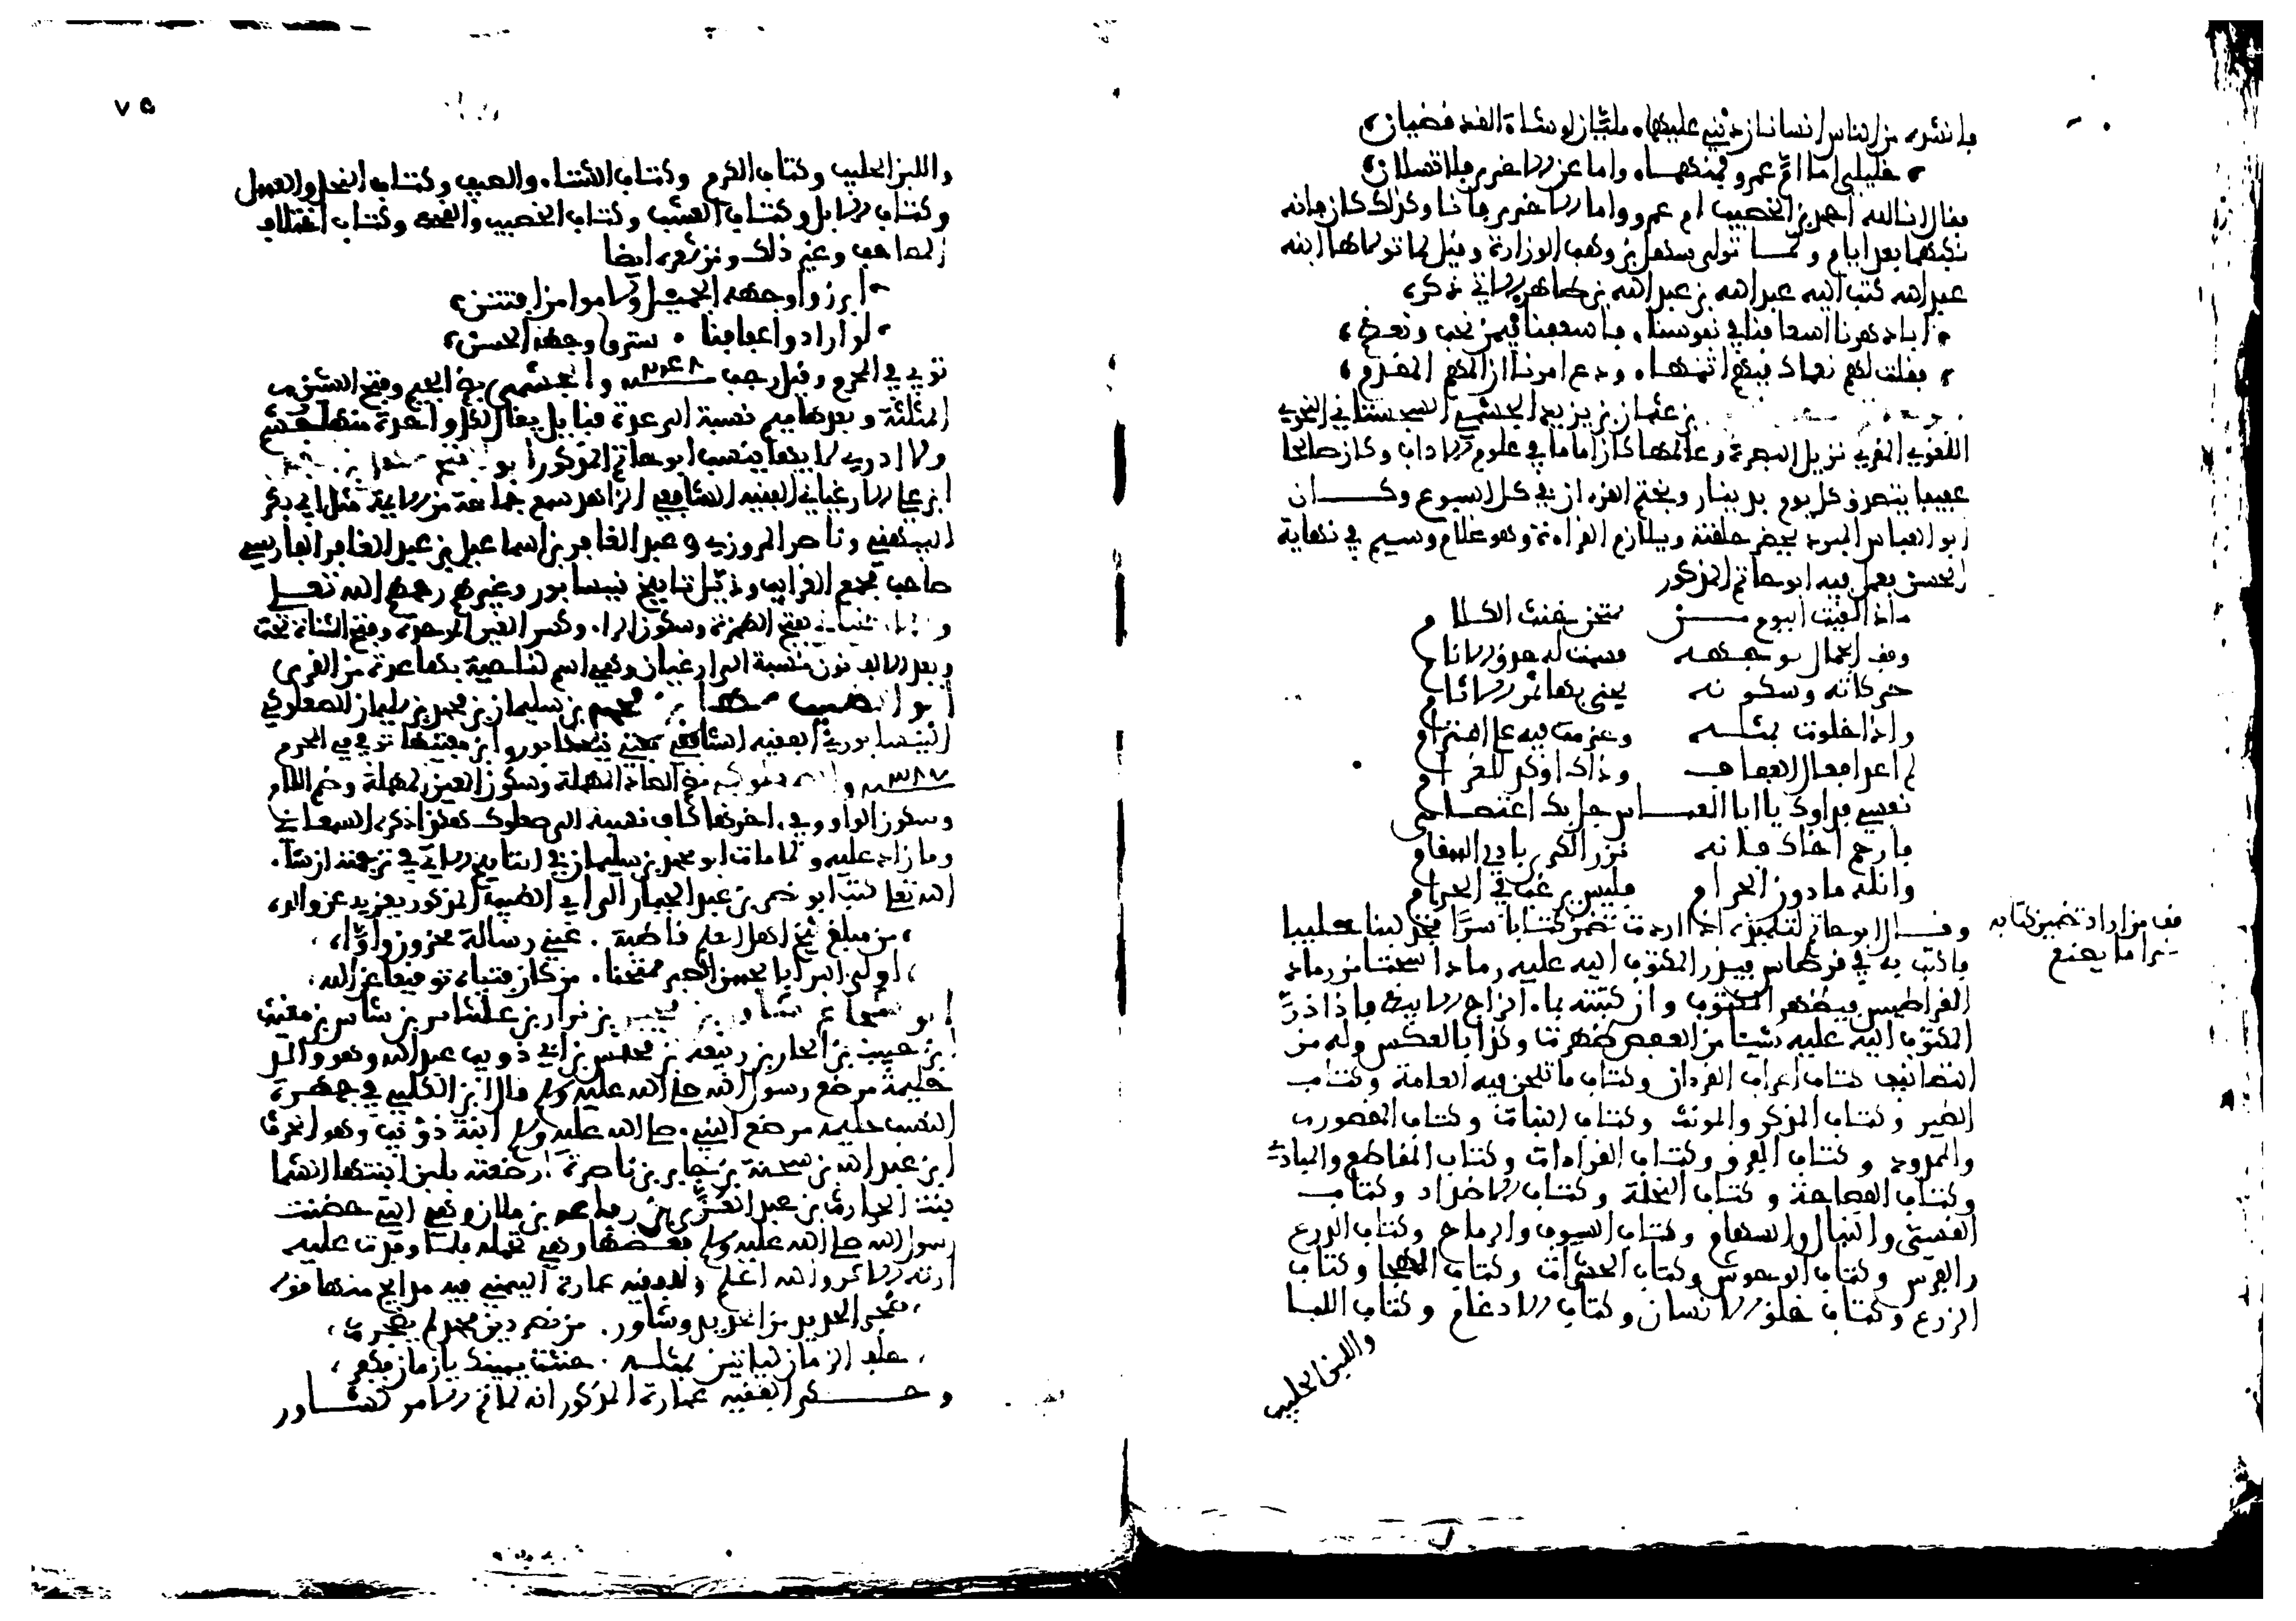 فانشده من الناس انسانان ديني عليهما مليان لو شاءا لقد قضيان
خليلي اما ام عمرو فمنهما واما عن الاخرى فلا تسلان
فقال انا لله احمد بن الخصيب ام عمرو واما الاخرى فانا وكذلك كان فانه
نكبهما بعد ايام ولما تولى سليمن بن وهب الوزارة وقيل لما تولاها ابنه
عبد الله كتب اليه عبد الله بن عبد الله بن طاهر الاتي ذكره
ابا دهرنا اسعافنا في نفوسنا واسعفنا فيمن نحب ونعظم
فقلت لهم نعماك فيهم اتمها ودع امرنا ان المهم المقدم
بن عثمان بن يزيد الجشمي السجستاني النحوي
اللغوي المقري نزيل البصرة وعالمها كان اماما في علوم الاداب وكان صالحا
عفيفا يتصدق كل يوم بدينار ويختم القران في كل اسبوع وكـــان
ابو العباس المبرد يحضر حلقته ويلازم القراءة وهو غلام وسيم في نهاية
الحسن فعمل فيه ابو حاتم المذكور
ماذا لقيت اليوم مـــن متمجن خنث الكلام
وقف الجمال بوجهه فسمت له حدق الانام
حركاته وسكونه يجنى بها ثمر الاثام
واذا خلوت بمثله وعزمت فيه على اعتزام
لم اعد افعال العفاف وذاك اوكد للغرام
نفسي فداوك يا ابا العبــاس جل بك اعتصامي
فارحم اخاك فانه نزر الكرى بادي السقام
وانله ما دون الحرام فليس يرغب في الحرام
وقــال ابو حاتم لتلميذه اذا اردت تضمن كتابا سرا فخذ لبنا حليبا
فاكتب به في قرطاس فيذر المكتوب اليه عليه رمادا سخنا من رماد
القراطيس فيظهر المكتوب وان كتبته بماء الزاج الابيض فاذا ذر
المكتوب اليه عليه شيئا من العفص ظهرت وكذا بالعكس وله من
التصانيف كتاب اعراب القران وكتاب ما تلحن فيه العامة وكتاب
الطير وكتاب المذكر والمونث وكتاب النبات وكتاب المقصور
والممدود وكتاب الفرق وكتاب القراءات وكتاب المقاطع والمبادئ
وكتاب الفصاحة وكتاب النخلة وكتاب الاضداد وكتاب
القسي والنبال والسهام وكتاب السيوف والرماح وكتاب الدرع
والفرس وكتاب الوحوش وكتاب الحشرات وكتاب الهجا وكتاب
الزرع وكتاب خلق الانسان وكتاب الادغام وكتاب اللبا
واللبن الحليب
قف من اراد تضمين كتابه
سرا ما يصنع
٧٥
واللبن الحليب وكتاب الكرم وكتاب الشتاء والصيف وكتاب النحل والعسل
وكتاب الابل وكتاب العشب وكتاب الخصب والقحط وكتاب اختلاف
المصاحف وغير ذلك ومن شعره ايضا
ابرزوا وجهه الجميل ولاموا من افتتن
لو ارادوا عفافنا ستروا وجهه الحسن
توفي في المحرم وقيل رجب ٢٤٨ والجشمي بضم الجيم وفتح الشين
المثلثة وبعدها ميم نسبة الى عدة قبايل يقال لكل واحدة منها جشم
ولا ادري لايها ينسب ابو حاتم المذكور ابو
ابن علي الارغياني الفقيه الشافعي الزاهد سمع جماعة من الايمة مثل ابي بكر
البيهقي وناصر المروزي وعبد الغافر بن اسماعيل بن عبد الغافر الفارسي
صاحب مجمع الغرايب وذيل تاريخ نيسابور وغيرهم رحمهم الله تعلى
بفتح الهمزة وسكون الراء وكسر الغين الموحدة وفتح المثناة تحت
وبعد الالف نون نسبة الى ارغيان وهي اسم لناحية بها عدة من القرى
ابو الطيب سهل بن محمد بن سليمان بن محمد بن سليمان الصعلوكي
النيسابوري الفقيه الشافعي مفتي نيسابور وابن مفتيها توفي في المحرم
٣٨٧ والصعلوكي بضم الصاد المهملة وسكون العين المهملة وضم اللام
وسكون الواو وفي اخرها كاف نسبة الى صعلوك هكذا ذكره السمعاني
وما زاد عليه ولما مات ابو محمد بن سليمان في التاريخ الاتي في ترجمته ان شاء
الله تعلى كتب ابو نصر بن عبد الجبار الى ابي الطيب المذكور يعزيه عن والده
من مبلغ شيخ اهل العلم قاطبة عني رسالة محزون واواه
اولى البرايا بحسن الصبر ممتحنا من كان فتياه توقيعا عن الله
ابو شجاع شاور بن مجير بن نزار بن عشاير بن شاس بن مغيث
بن حبيب بن الحارث بن ربيعة بن مخيس بن ابي ذويب عبد الله وهو والد
حليمة مرضع رسول الله صلى الله عليه وسلم قال ابن الكلبي في جمهرة
النسب حليمة مرضع النبي صلى الله عليه وسلم ابنة ذؤيب وهو الحرث
ابن عبد الله بن شجنة بن جابر بن ناصرة ارضعته بلبن ابنتها الشيما
بنت الحارث بن عبد العزى بن رفاعة بن ملان وهي التي حضنت
رسول الله صلى الله عليه وسلم وهي تحمله
والله اعلم وللفقيه عمارة اليمني فيه مدايح منها قوله
ضجر الحديد من الحديد وشاور من نصر دين محمد لم يضجر
حلف الزمان لياتين بمثله حنثت يمينك يا زمان فكفر
وحــكى الفقيه عمارة المذكور انه لما تم الامر لشــاور